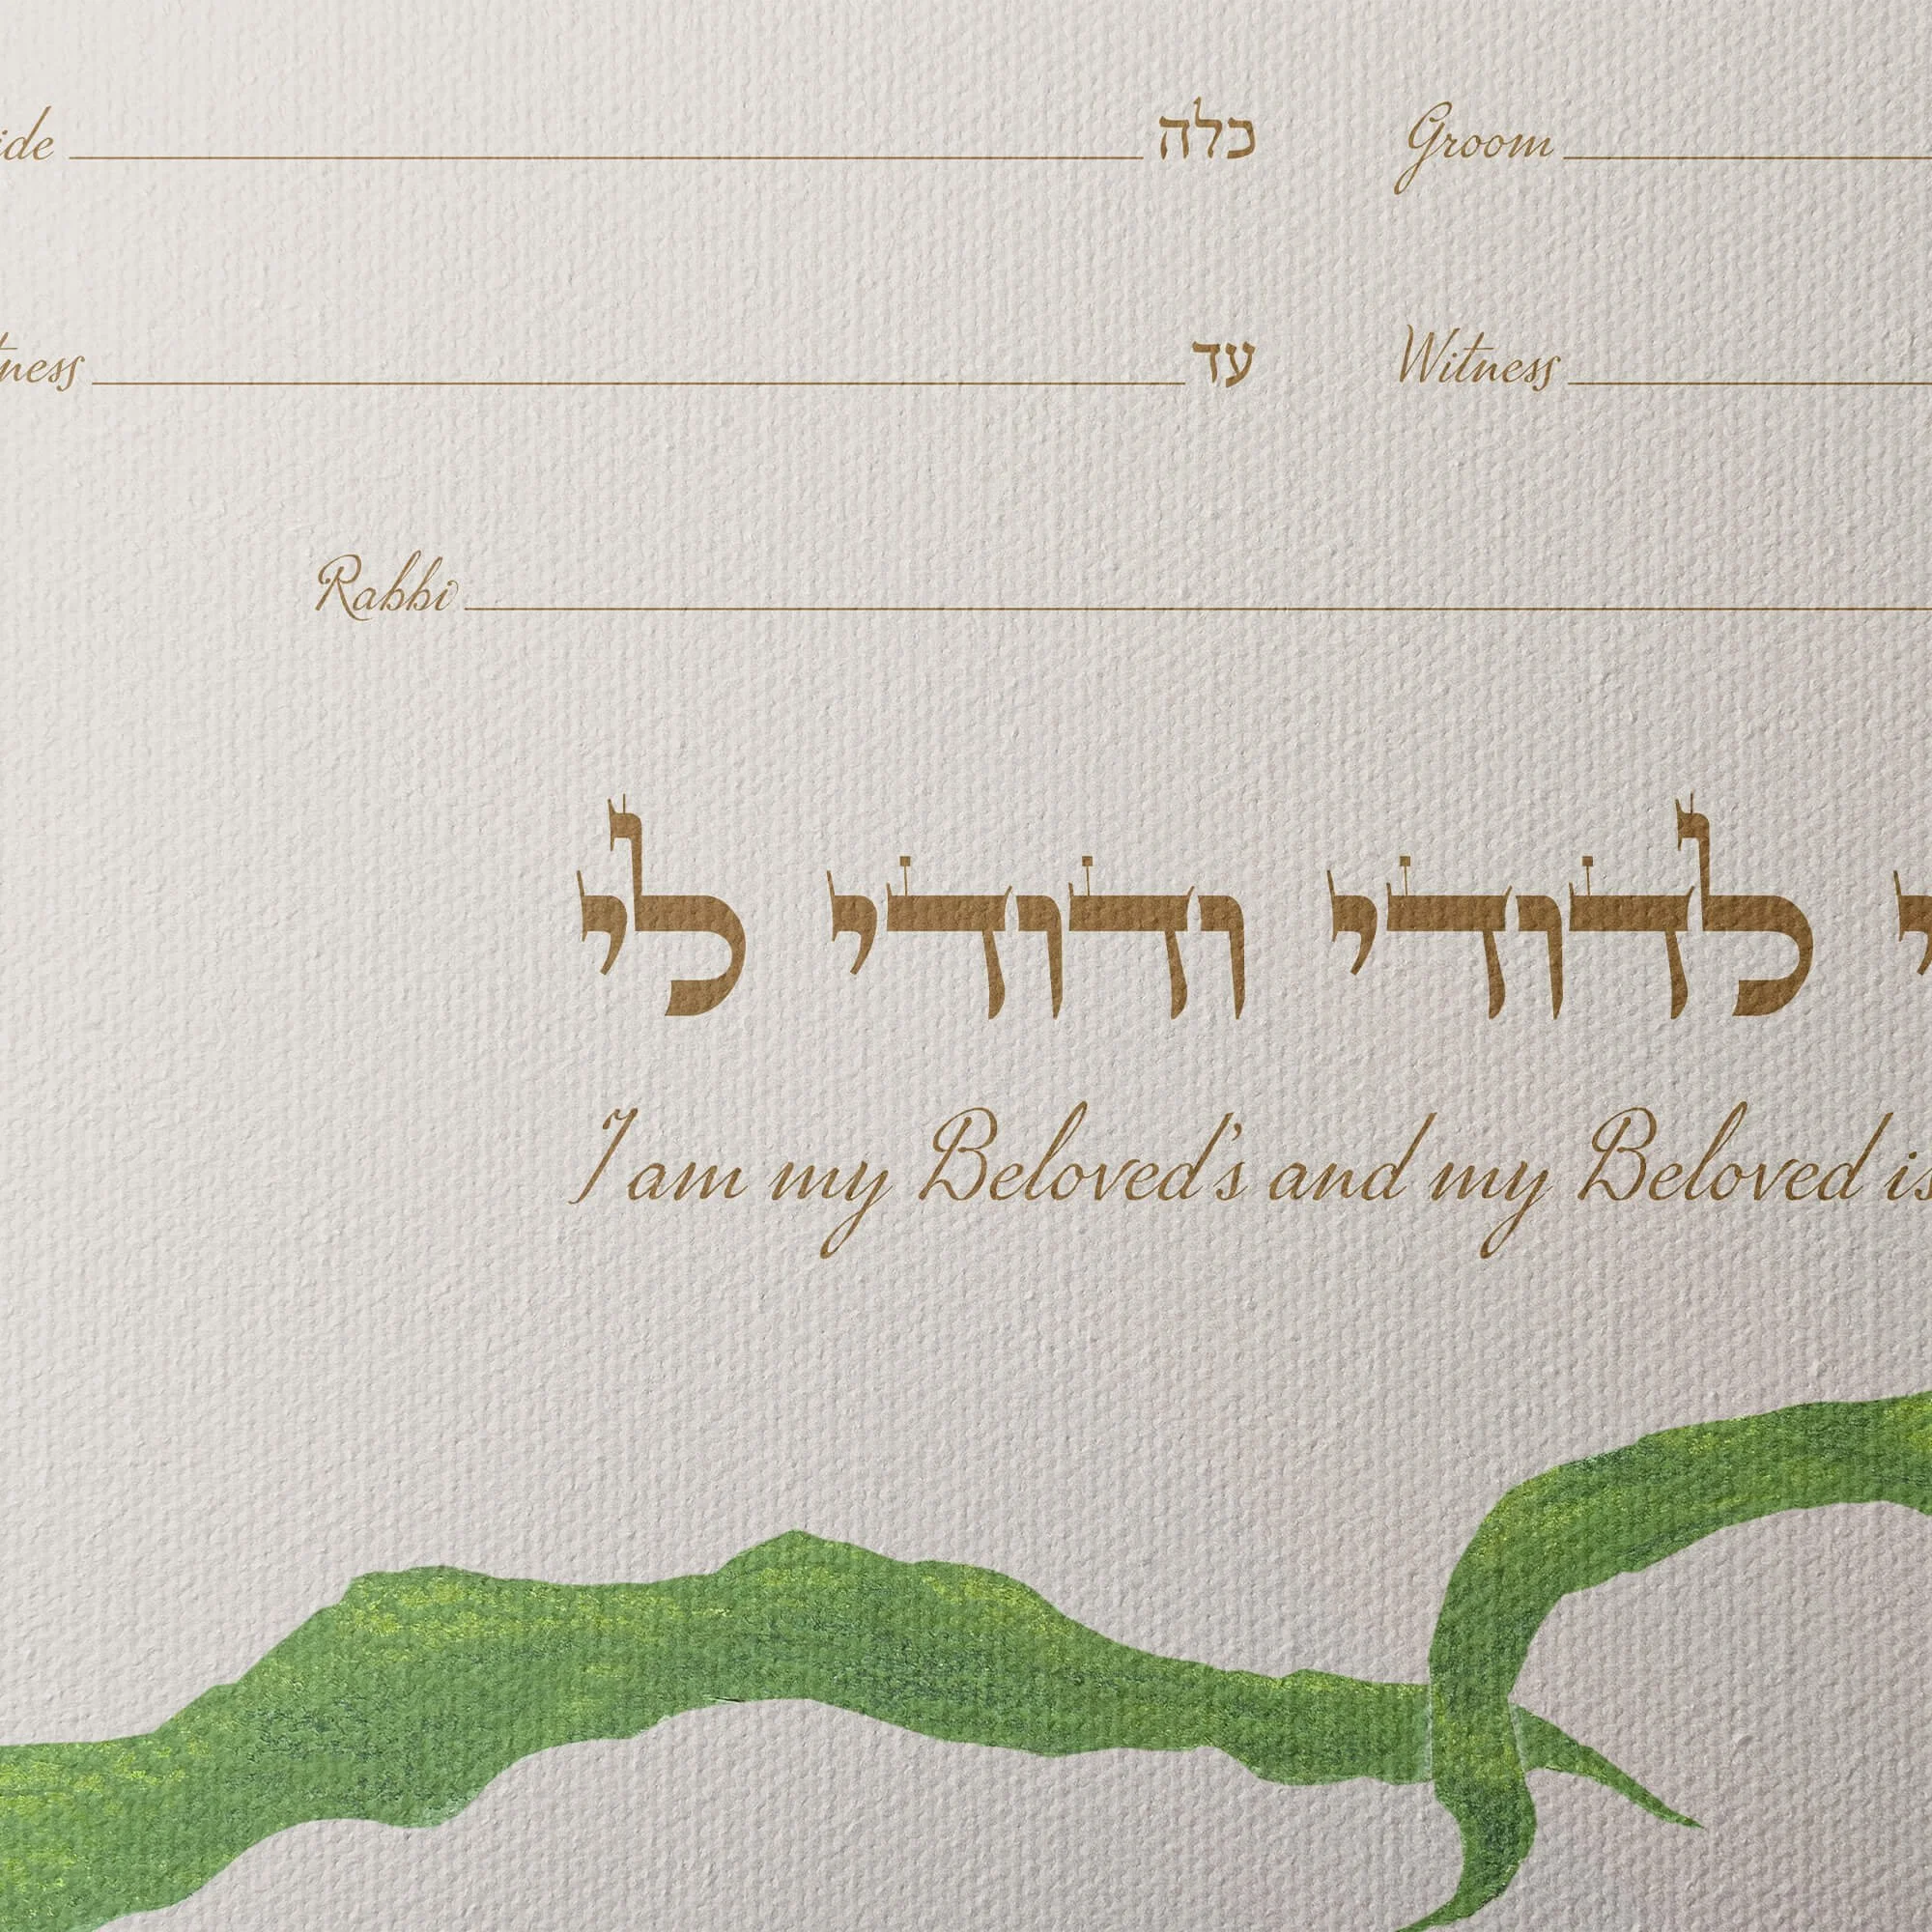 ide כלה Groom
tness עד Witness
Rabbi
י לדודי ודודי לי
I am my Beloved's and my Beloved is